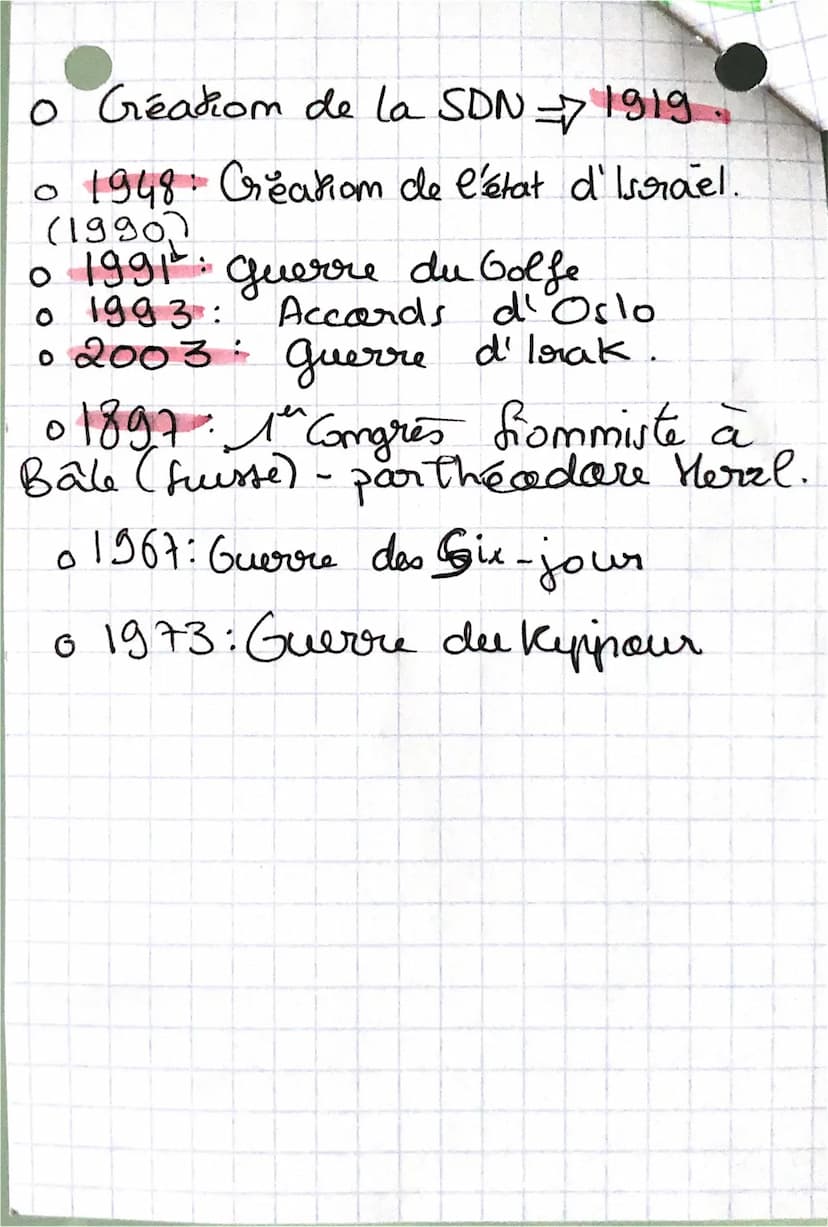 o Création de la SDN ⇒ 1919.
o 1948 : Création de l'état d'Israël.
(1990)
o 1991 : guerre du Golfe
o 1993 : Accords d'Oslo
o 2003 : guerre d'Irak.
o 1897 : 1er Congrès Sionniste à
Bâle (Suisse) - par Théodore Herzl.
o 1967 : Guerre des Six-jour
o 1973 : Guerre du Kippour